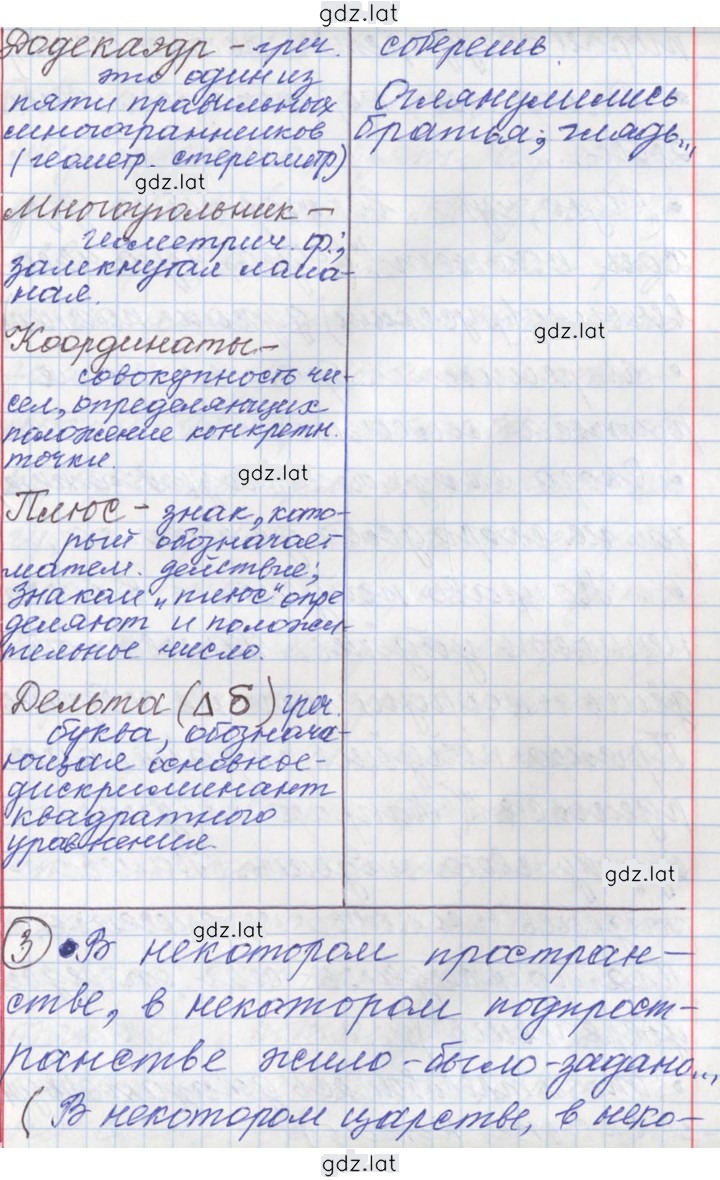 gdz.lat
Додекаэдр - греч.
это один из
пяти правильных
многогранников
(геометр. стереометр)
gdz.lat
Многоугольник -
геометрич. ф.;
замкнутая лома-
ная.
Координаты -
совокупность чи-
сел, определяющих
положение конкретн.
точки.
gdz.lat
Плюс - знак, кото-
рый обозначает
матем. действие;
Знаком „плюс" опре
деляют и положи-
тельное число.
Дельта (Δ δ) греч.
буква, обознача-
ющая основное -
дискриминант
квадратного
уравнения.
соберешь
Оглянулились
братья, глядь..,
gdz.lat
gdz.lat
gdz.lat
3 • В некотором простран-
стве, в некатором подпрост-
ранстве жило-было-задано..,
(В некотором царстве, в неко-
gdz.lat